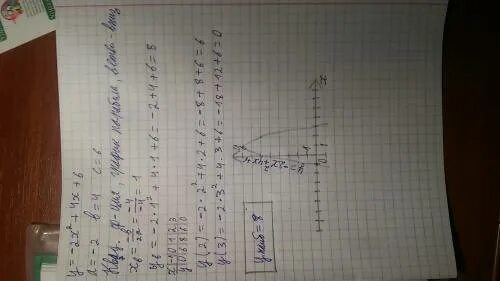 y = -2x² + 4x + 6
a = -2   b = 4   c = 6
Квад. ф-ция, график парабола, ветви - вниз
x_в = -b/2a = -4/-4 = 1
y_в = -2 · 1² + 4 · 1 + 6 = -2 + 4 + 6 = 8
x | -1 | 0 | 1 | 2 | 3
y | 0 | 6 | 8 | 6 | 0
y(2) = -2 · 2² + 4 · 2 + 6 = -8 + 8 + 6 = 6
y(3) = -2 · 3² + 4 · 3 + 6 = -18 + 12 + 6 = 0
y
x
0
1
1
y наиб = 8